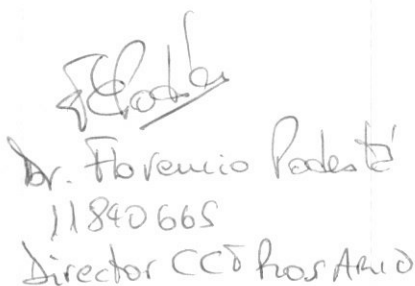 Dr. Florencio Podestá
11840665
Director CCT Rosario